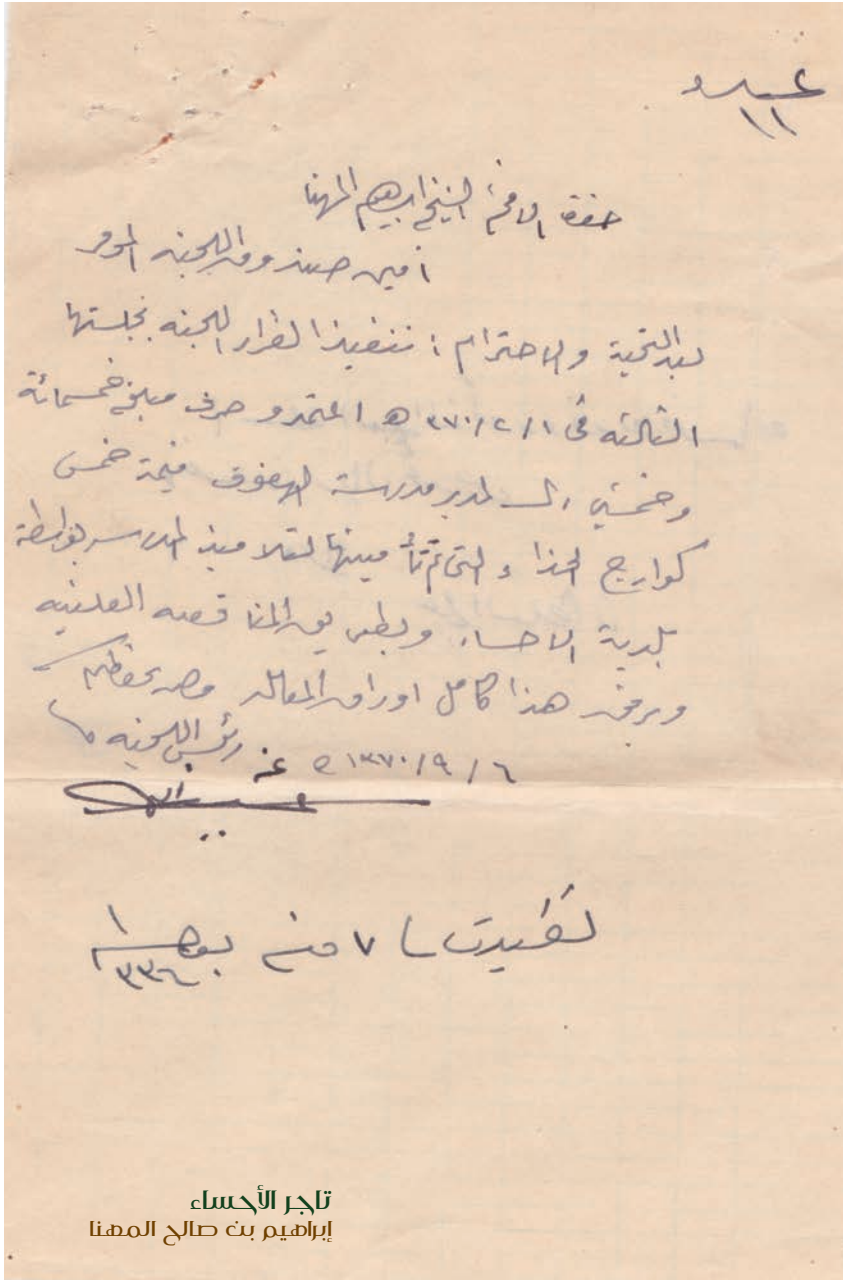 عدد
١١
حضرة الافخم الشيخ ابراهيم المهنا
أمين صندوق اللجنه الموقر
بعد التحية والاحترام : تنفيذا لقرار اللجنه بجلستها
الثالثه فى ٣٧٠/٢/١ ه اعتمدو صرف مبلغ خمسمائة
وخمسين ريال لمدير مدرسة الهفوف قيمة خمس
كوارج الحذاء والتى تم تأمينها لتلاميذ المدارس بواسطة
بلدية الاحساء وبطريق المناقصه العلنيه
وبرفقه هذا كامل اوراق المعامله
١٣٧٠/٩/٦ ه عن رئيس اللجنه
٧ منه
٣٣٤
تاجر الأحساء
إبراهيم بن صالح المهنا